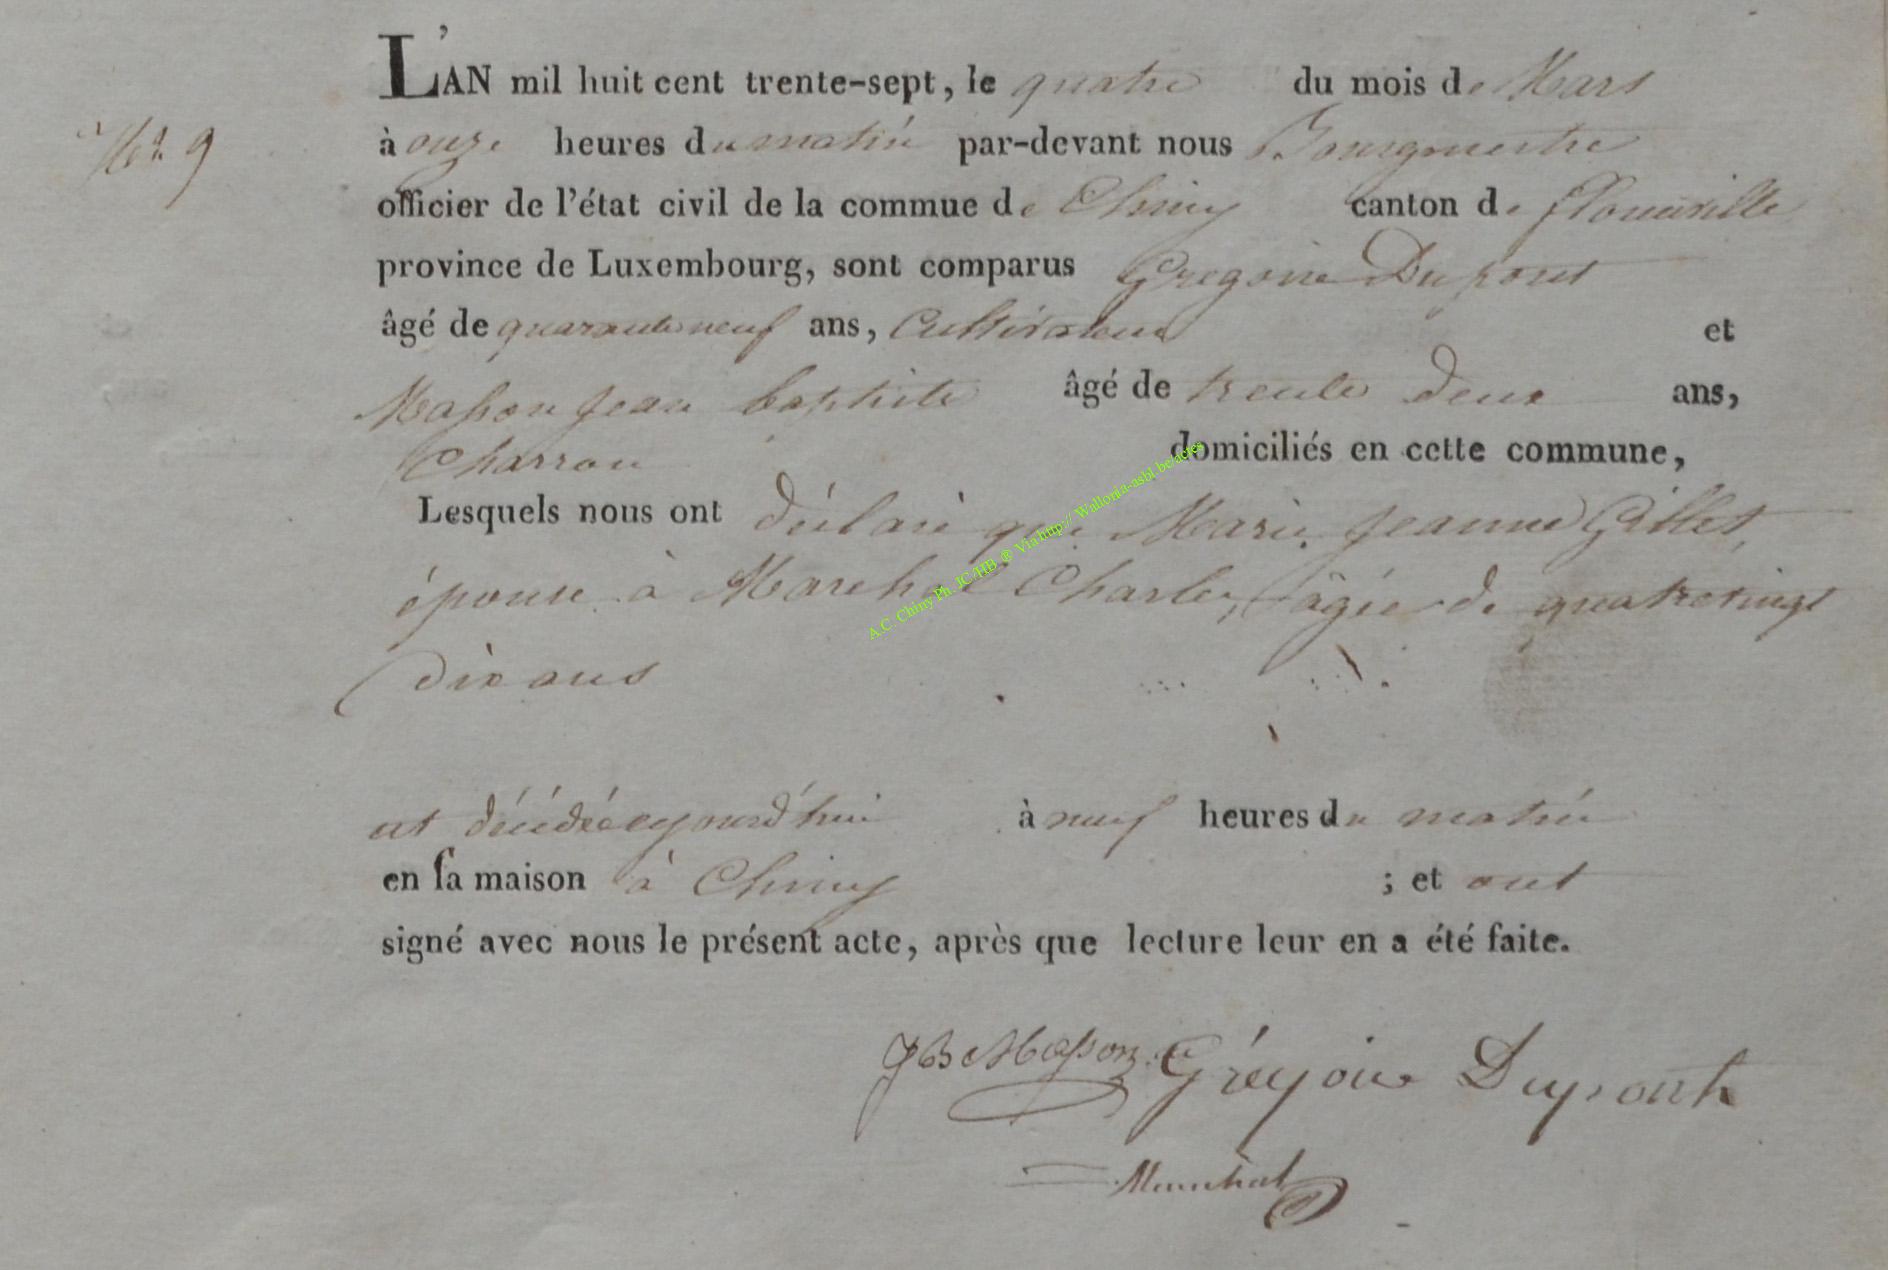 L'AN mil huit cent trente-sept, le quatre du mois de Mars
N.º 9
à onze heures du matin par-devant nous Bourgmestre
officier de l'état civil de la commue de Chiny canton de florenville
province de Luxembourg, sont comparus Gregoire Dupont
âgé de quarante neuf ans, Cultivateur et
Masson Jean baptiste âgé de trente deux ans,
Charron domiciliés en cette commune,
Lesquels nous ont déclaré que Marie Jeanne Gillet,
épouse à Marchal Charles, âgée de quatrevingt
dix ans
A.C. Chiny Ph. JC/HB ® Via http:// Wallonia-asbl.be/actes
est décédée aujourd'hui à neuf heures du matin
en sa maison à Chiny ; et ont
signé avec nous le présent acte, après que lecture leur en a été faite.
JB Masson Grégoire Dupont
Marechal